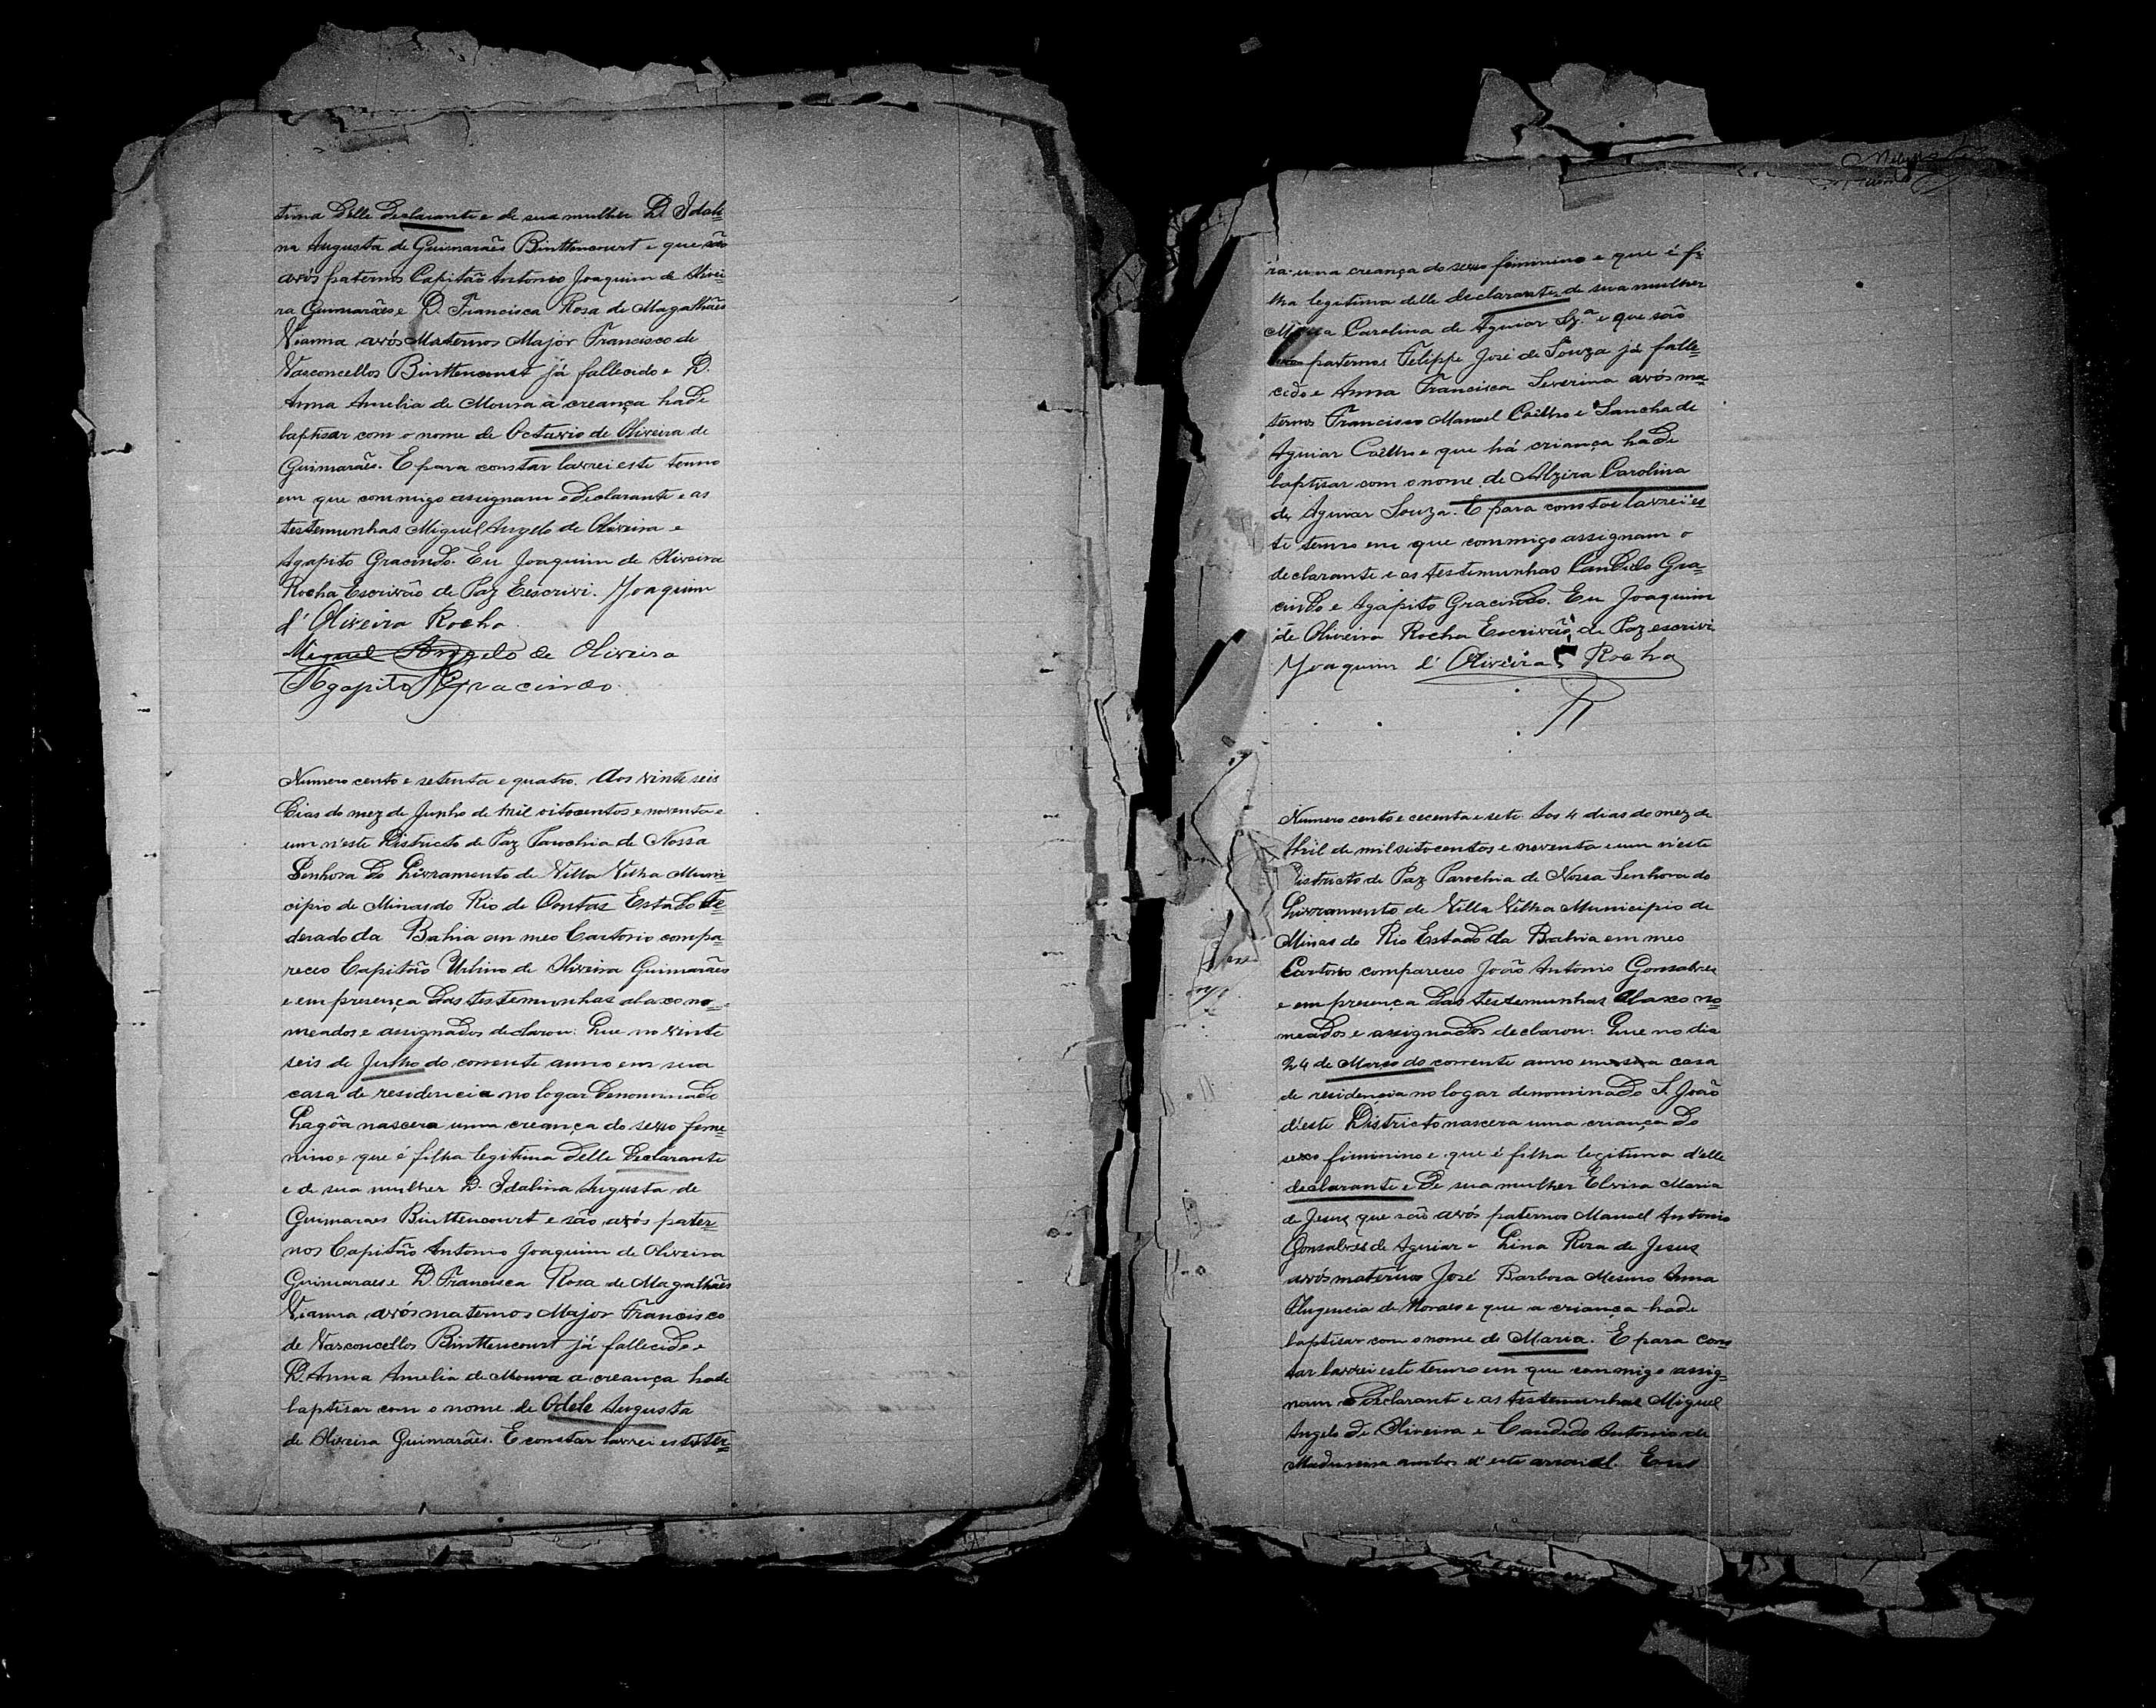 tima delle declarante e de sua mulher D. Idali-
na Augusta de Guimarães Binttencourt e que são
avós paternos Capitão Antonio Joaquim de Olivei-
ra Guimarães e D. Francisca Rosa de Magalhães
Vianna avós Maternos Major Francisco de
Vasconcellos Binttencourt já fallecido e D.
Anna Amelia de Moura a creança hade
baptisar com o nome de Octavio de Oliveira de
Guimarães. E para constar lavrei este termo
em que commigo assignam o declarante e as
testemunhas Miguel Angelo de Oliveira e
Agapito Gracindo. Eu Joaquim de Oliveira
Rocha Escrivão de Paz Escrivi. Joaquim
d'Oliveira Rocha.
Miguel Angelo de Oliveira
Agapito Gracindo.
Numero cento e setenta e quatro. Aos vinte seis
dias do mez de Junho de mil oitocentos e noventa e
um n'este Districto de Paz Parochia de Nossa
Senhora do Livramento de Villa Velha Muni-
cipio de Minas do Rio de Contas Estado Fe-
derado da Bahia em meo Cartorio compa-
receo Capitão Urbino de Oliveira Guimarães
e em presença das testemunhas abaxo no-
meados e assignados declarou: Que no vinte
seis de Julho do corrente anno em sua
casa de residencia no logar denominado
Lagôa nascera uma creança do sexo feme-
nino e que é filha legitima delle declarante
e de sua mulher D. Idalina Augusta de
Guimaraes Binttencourt e são avós pater-
nos Capitão Antonio Joaquim de Oliveira
Guimaraes e D. Francisca Rosa de Magalhães
Vianna avós maternos Major Francisco
de Vasconcellos Binttencourt já fallecido e
D. Anna Amelia de Moura a creança hade
baptisar com o nome de Odele Augusta
de Oliveira Guimarães. E constar lavrei este ter-
ra uma creança do sexo feminino e que é fi-
lha legitima delle declarante e de sua mulher
Carolina de Aguiar Sz.ª e que são
paternos Felippe José de Souza já falle-
cido e Anna Francisca Severina avós ma-
ternos Francisco Manoel Coêlho e Sancha de
Aguiar Coêlho e que há criança hade
baptisar com o nome de Alzira Carolina
de Aguiar Souza. E para constar lavrei es-
te termo em que commigo assignam o
declarante e as testemunhas Candido Gra-
cindo e Agapito Gracindo. Eu Joaquim
de Oliveira Rocha Escrivão de Paz escrivi
Joaquim d'Oliveira Rocha
Numero cento e cecenta e sete. Aos 4 dias do mez de
Abril de mil oitocentos e noventa e um n'este
Districto de Paz Parochia de Nossa Senhora do
Livramento de Villa Velha Municipio de
Minas do Rio Estado da Bahia em meo
Cartorio compareceo João Antonio Gonsalves
e em presença das testemunhas abaxo no-
meados e assignados declarou: Que no dia
24 de Março do corrente anno em sua casa
de residencia no logar denominado S. João
d'este Districto nascera uma criança do
sexo fiminino e que é filha legitima d'elle
declarante e de sua mulher Elvira Maria
de Jesus que são avós paternos Manoel Antonio
Gonsalves de Aguiar e Lina Rosa de Jesus
avós maternos José Barbosa Mesmo Anna
de Moraes e que a criança hade
baptisar com o nome de Maria. E para cons-
tar lavrei este termo em que commigo assig-
nam o declarante e as testemunhas Miguel
Angelo de Oliveira e Candido Antonio de
Madureira ambos d'este arraial. Eu